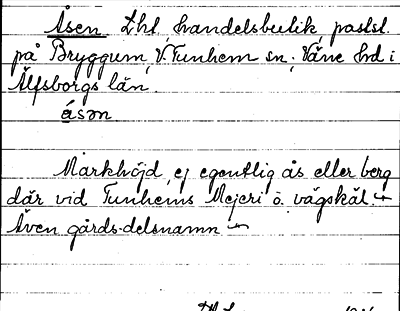 Åsen Lht, handelsbutik, pastst.
på Bryggum, V. Tunhem sn, Väne hd i
Älfsborgs län.
åsən
Markhöjd, ej egentlig ås eller berg
där vid Tunhems Mejeri o. vägskäl
Även gårds-delsnamn